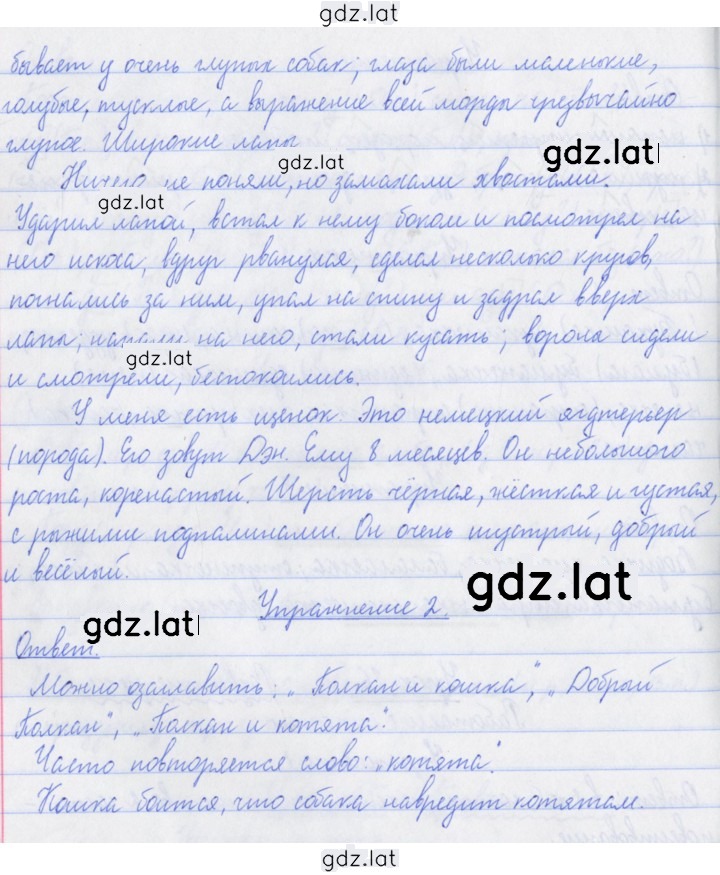 gdz.lat
бывает у очень глупых собак; глаза были маленькие,
голубые, тусклые, а выражение всей морды чрезвычайно
глупое. Широкие лапы
gdz.lat
Ничего не поняли, но замахали хвостами.
gdz.lat
Ударил лапой, встал к нему боком и посмотрел на
него искоса, вдруг рванулся, сделал несколько кругов,
погнались за ним, упал на спину и задрал вверх
лапы; напали на него, стали кусать; вороны сидели
gdz.lat
и смотрели, беспокоились.
У меня есть щенок. Это немецкий ягдтерьер
(порода). Его зовут Дэн. Ему 8 месяцев. Он небольшого
роста, коренастый. Шерсть чёрная, жёсткая и густая,
с рыжими подпалинами. Он очень шустрый, добрый
и весёлый.
gdz.lat
Упражнение 2.
gdz.lat
Ответ.
Можно озаглавить: „Полкан и кошка", „Добрый
Полкан", „Полкан и котята".
Часто повторяется слово: „котята".
Кошка боится, что собака навредит котятам.
gdz.lat